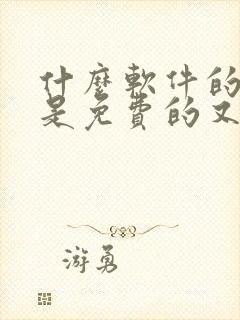 什麼軟件的
是免費的又
游勇